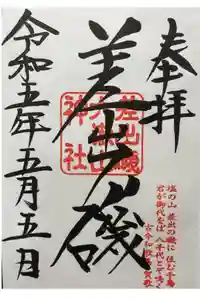 奉拝
差出磯
差出磯
大嶽山
神社
塩の山 差出の磯に 住む千鳥
君が御代をば 八千代とぞ鳴く
古今和歌集 賀歌
令和五年五月五日